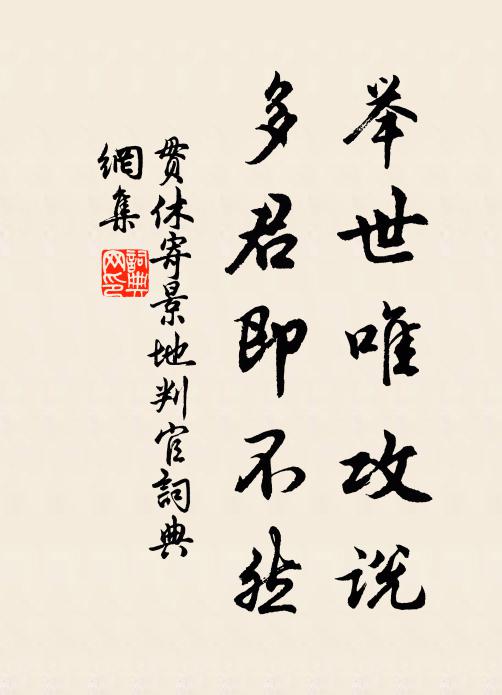 举世唯攻说
多君即不然
贯休寄景地判官词典
網集
詞典网印